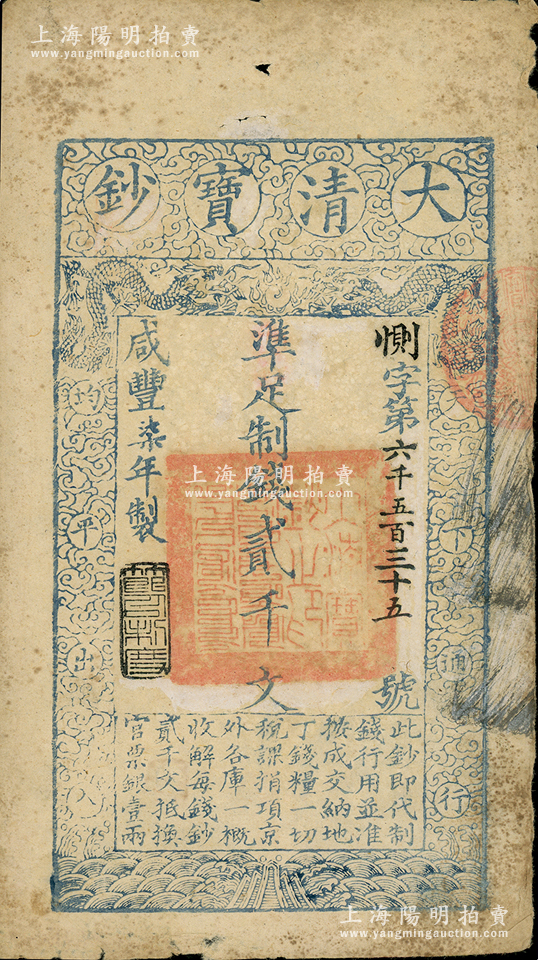 上海陽明拍賣
www.yangmingauction.com
大清寶鈔
天下通行
均平出入
惻字第六千五百三十五號
準足制錢貳千文
咸豐柒年製
上海陽明拍賣
www.yangmingauction.com
此鈔即代制
錢行用並准
按成交納地
丁錢糧一切
稅課捐項京
外各庫一概
收解每錢鈔
貳千文抵換
官票銀壹兩
上海陽明拍賣
www.yangmingauction.com